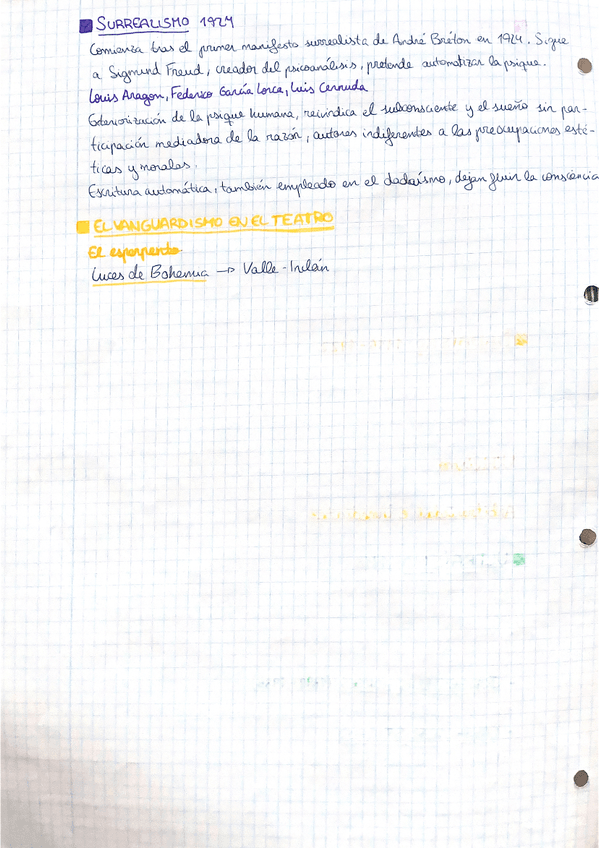 SURREALISMO 1924
Comienza tras el primer manifesto surrealista de André Bréton en 1924. Sigue
a Sigmund Freud, creador del psicoanálisis, pretende automatizar la psique.
Louis Aragon, Federico García Lorca, Luis Cernuda
Exteriorización de la psique humana, reivindica el subconsciente y el sueño sin par-
ticipación mediadora de la razón, autores indiferentes a las preocupaciones esté-
ticas y morales.
Escritura automática, también empleado en el dadaísmo, dejan fluir la consciencia
EL VANGUARDISMO EN EL TEATRO
El esperpento.
Luces de Bohemia → Valle-Inclán